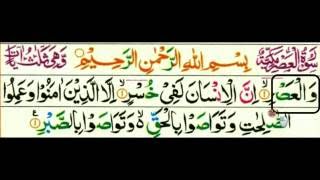 سورة العصر مكية بسم الله الرحمن الرحيم وهي ثلث آيات
وَالْعَصْرِ ۙ﴿۱﴾ اِنَّ الْاِنْسَانَ لَفِیْ خُسْرٍ ۙ﴿۲﴾ اِلَّا الَّذِیْنَ اٰمَنُوْا وَعَمِلُوا
الصّٰلِحٰتِ وَتَوَاصَوْا بِالْحَقِّ ۙ۬ وَتَوَاصَوْا بِالصَّبْرِ ﴿۳﴾